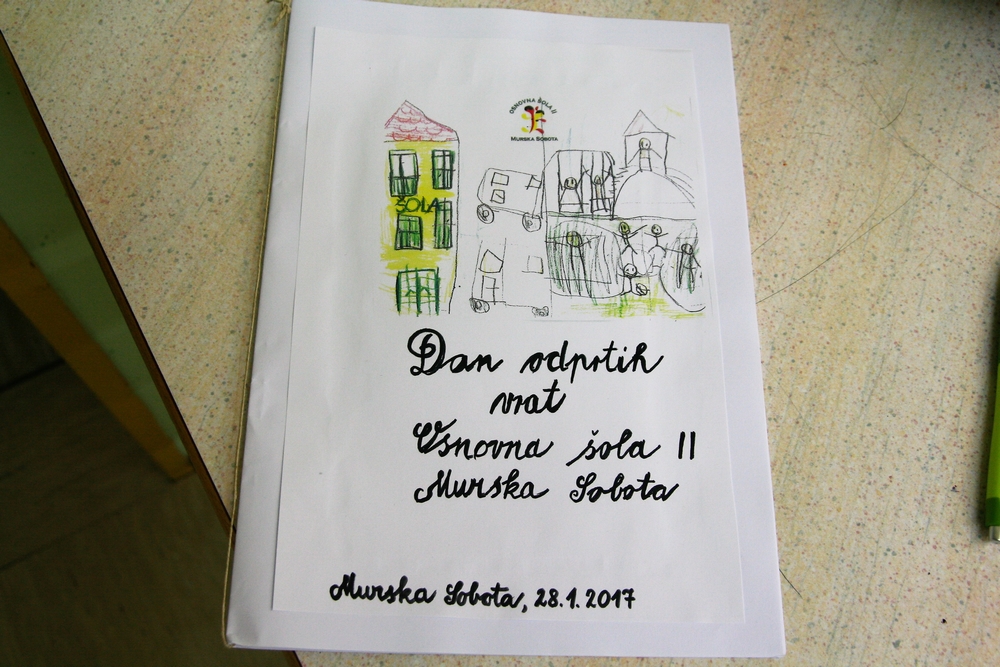 OSNOVNA ŠOLA II
MURSKA SOBOTA
ŠOLA
Dan odprtih
vrat
Osnovna šola II
Murska Sobota
Murska Sobota, 28.1.2017